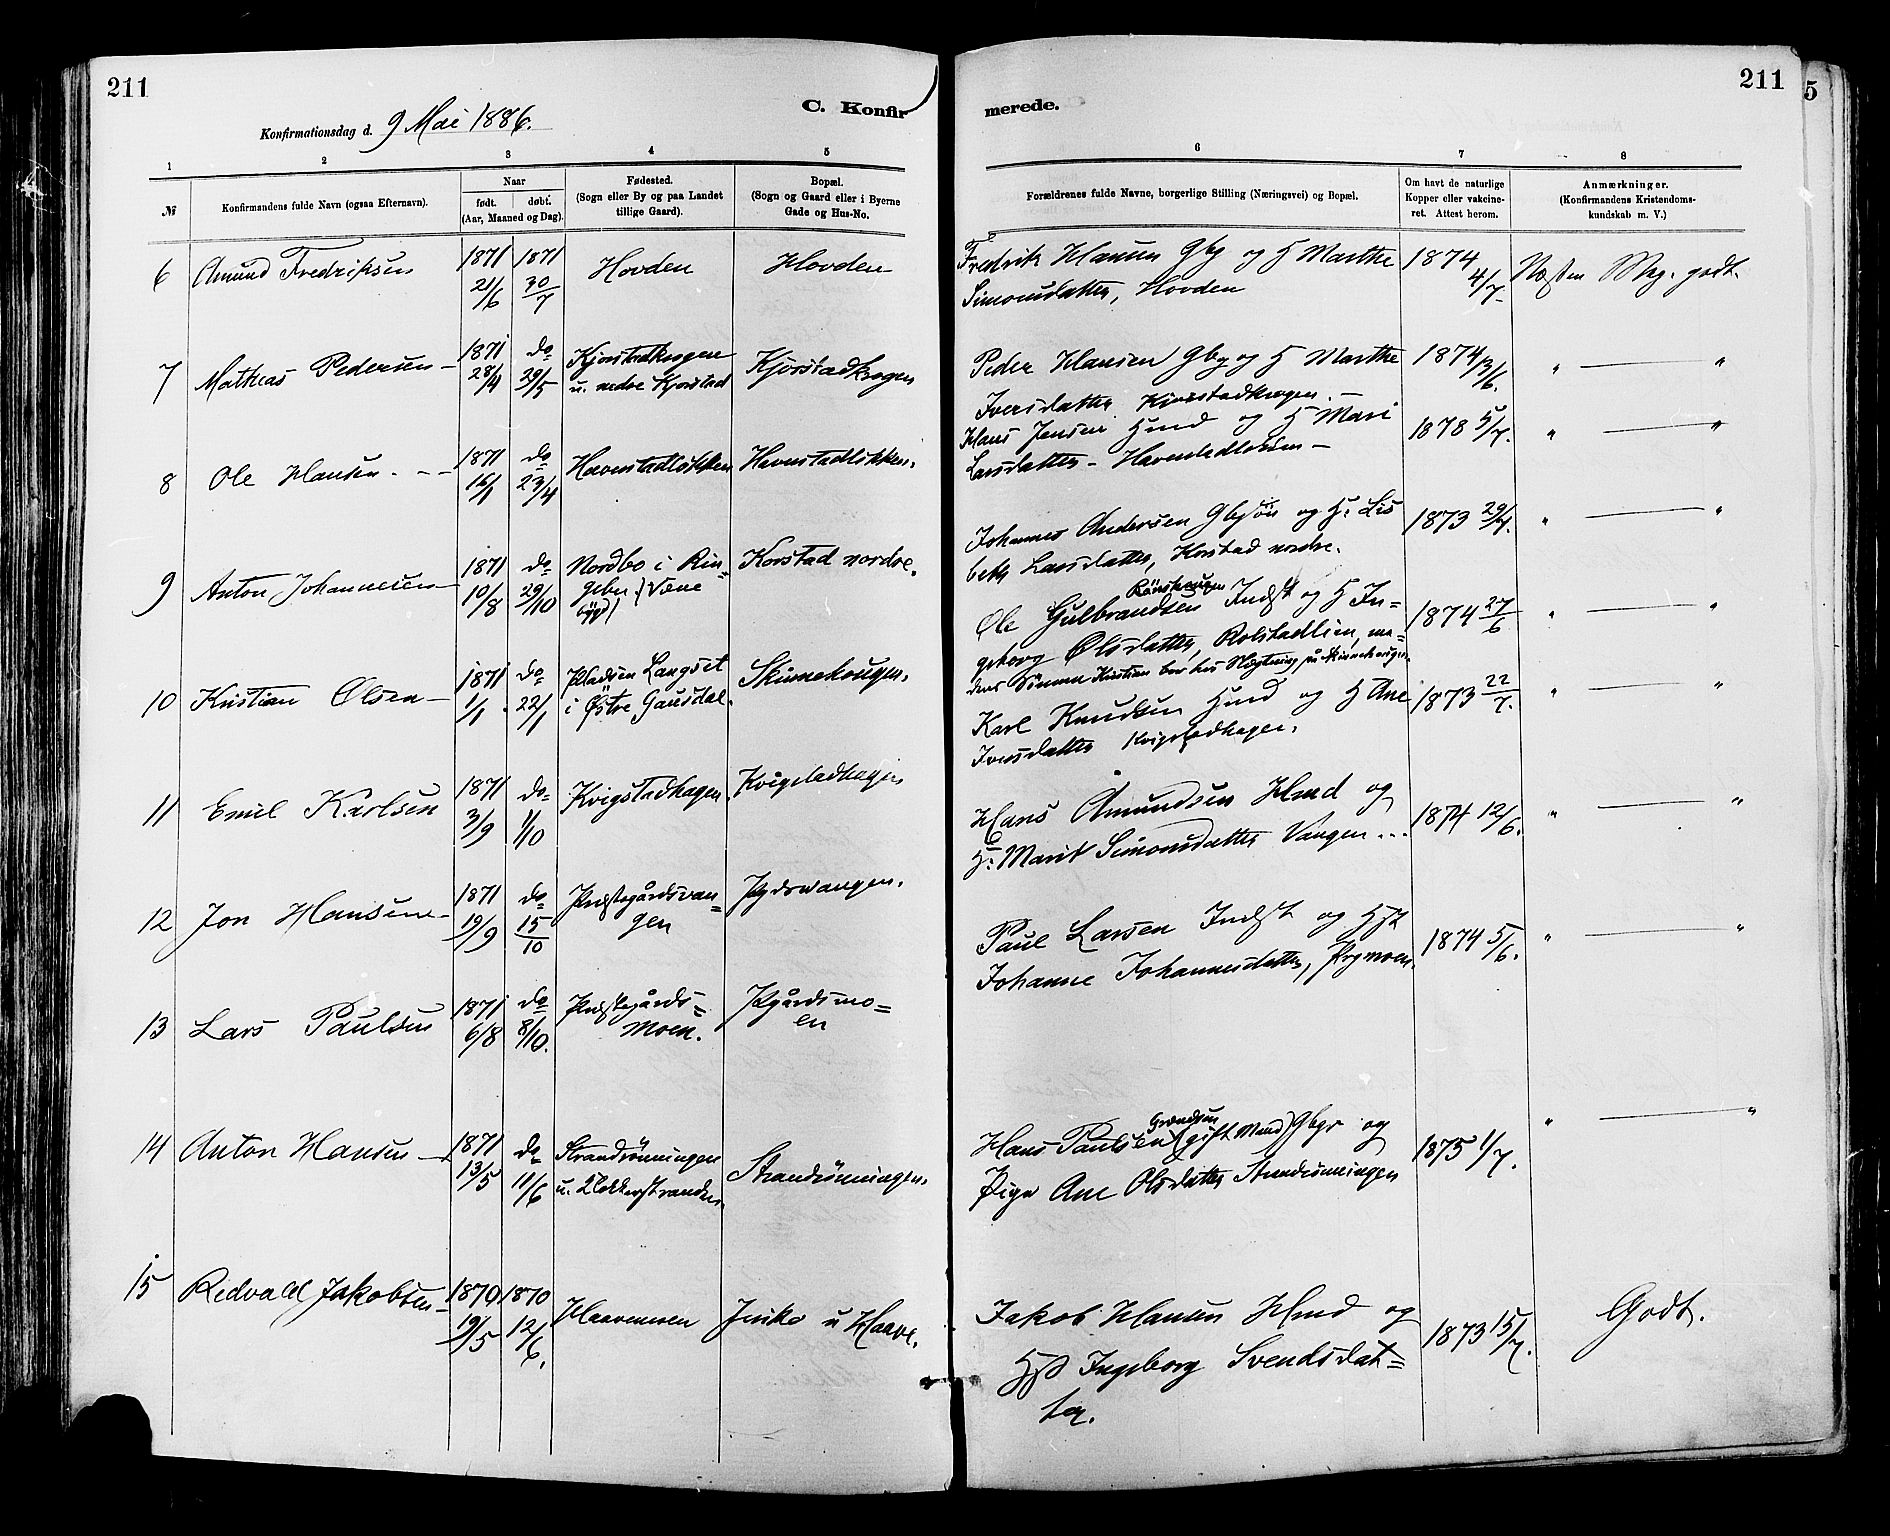 211
Konfirmationsdag d. 9 Mai 1886.
C. Konfir
1 2 3 4 5
№
Konfirmandens fulde Navn (ogsaa Efternavn).
Naar
født. døbt.
(Aar, Maaned og Dag).
Fødested.
(Sogn eller By og paa Landet
tillige Gaard).
Bopæl.
(Sogn og Gaard eller i Byerne
Gade og Hus-No.
6 Amund Fredriksen 1871 21/6 1871 30/7 Hovden Hovden
7 Mathias Pedersen 1871 28/4 do 29/5 Kjorstadkrogen
u. nedre Kjorstad Kjorstadkrogen
8 Ole Hansen 1871 16/1 do 23/4 Havnstadløkken Havnstadløkken.
9 Anton Johannesen 1871 10/8 do 29/10 Nordbo i Rin=
gebu (Væne
bygd) Korstad nordre.
10 Kristian Olsen 1871 1/1 do 22/1 Pladsen Langset
i Østre Gausdal. Skinnehougen.
11 Emil Karlsen 1871 3/9 do 1/10 Kvigstadhagen Kvigstadhagen
12 Jon Hansen 1871 19/9 do 15/10 Præstegårdsvan=
gen Pgdsvangen.
13 Lars Paulsen 1871 6/8 do 8/10. Præstegårds=
moen. Pgårdsmo=
en
14 Anton Hansen 1871 13/5 do 11/6 Strandrönningen
u. Klokkerstranden. Strandrönningen.
15 Redvald Jakobsen 1870 19/5 1870 12/6. Haavemoen u Haave.
211
merede.
6 7 8
Forældrenes fulde Navne, borgerlige Stilling (Næringsvei) og Bopæl.
Om havt de naturlige
Kopper eller vakcine-
ret. Attest herom.
Anmærkninger.
(Konfirmandens Kristendoms-
kundskab m. V.)
Fredrik Hansen Gbg og H Marthe 1874 4/7 Næsten Meg. godt.
Simonsdatter, Hovden
Peder Hansen Gbg og H Marthe 1874 13/6. " — "
Iversdatter Kjorstadkrogen.
Hans Jensen Hmd og H Mari 1878 5/7. " — "
Larsdatter – Havnstadløkken –
Johannes Andersen Gbsön og H: Lis 1873 29/7. " — "
beth Larsdatter, Korstad nordre.
Ole Gulbrandsen Indst og H In= 1874 27/6 " — "
geborg Olsdatter, Rolstadlien, me=
dens Sönnen Kristian bor hos Slægtning på Skinnehaugen.
Karl Knudsen Hmd og H Ane 1873 22/7. " — "
Iversdatter Kvigstadhagen.
Hans Amundsen Hmd og
H: Marit Simonsdatter Vangen... 1874 12/6. " — "
Paul Larsen Indst og Hst
Johanne Johannesdatter, Prgmoen. 1874 5/6. " — "
Hans Paulsen (gift Mand) Gbgr og 1875 1/7. " — "
Pige Ane Olsdatter Strandrönningen
Jakob Hansen Hmd og 1873 15/7. Godt.
Hst Ingeborg Svendsdat=
ter.
5